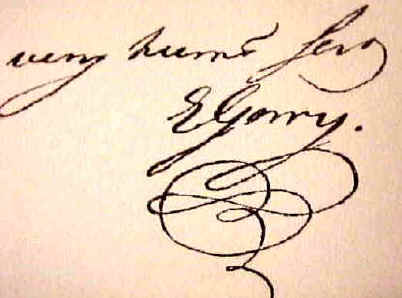 very humᵉ Serv
E Gerry.